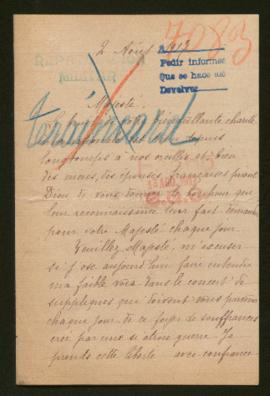 7083
2 Août 1917
REPATRIACIÓN
MILITAR
Pedir informes
Que se hace así
Devolver
Majesté,
bienveillante charité
depuis
longtemps à nos oreilles et bien
des mères, des épouses françaises prient
Dieu de vous donner le bonheur que
leur reconnaissance leur fait demander
pour votre Majesté chaque jour.
Veuillez Majesté, m'excuser
si j'ose aujourd'hui faire entendre
ma faible voix dans le concert de
suppliques qui doivent vous parvenir
chaque jour de ce foyer de souffrances
créé par une si atroce guerre. Je
prends cette liberté avec confiance